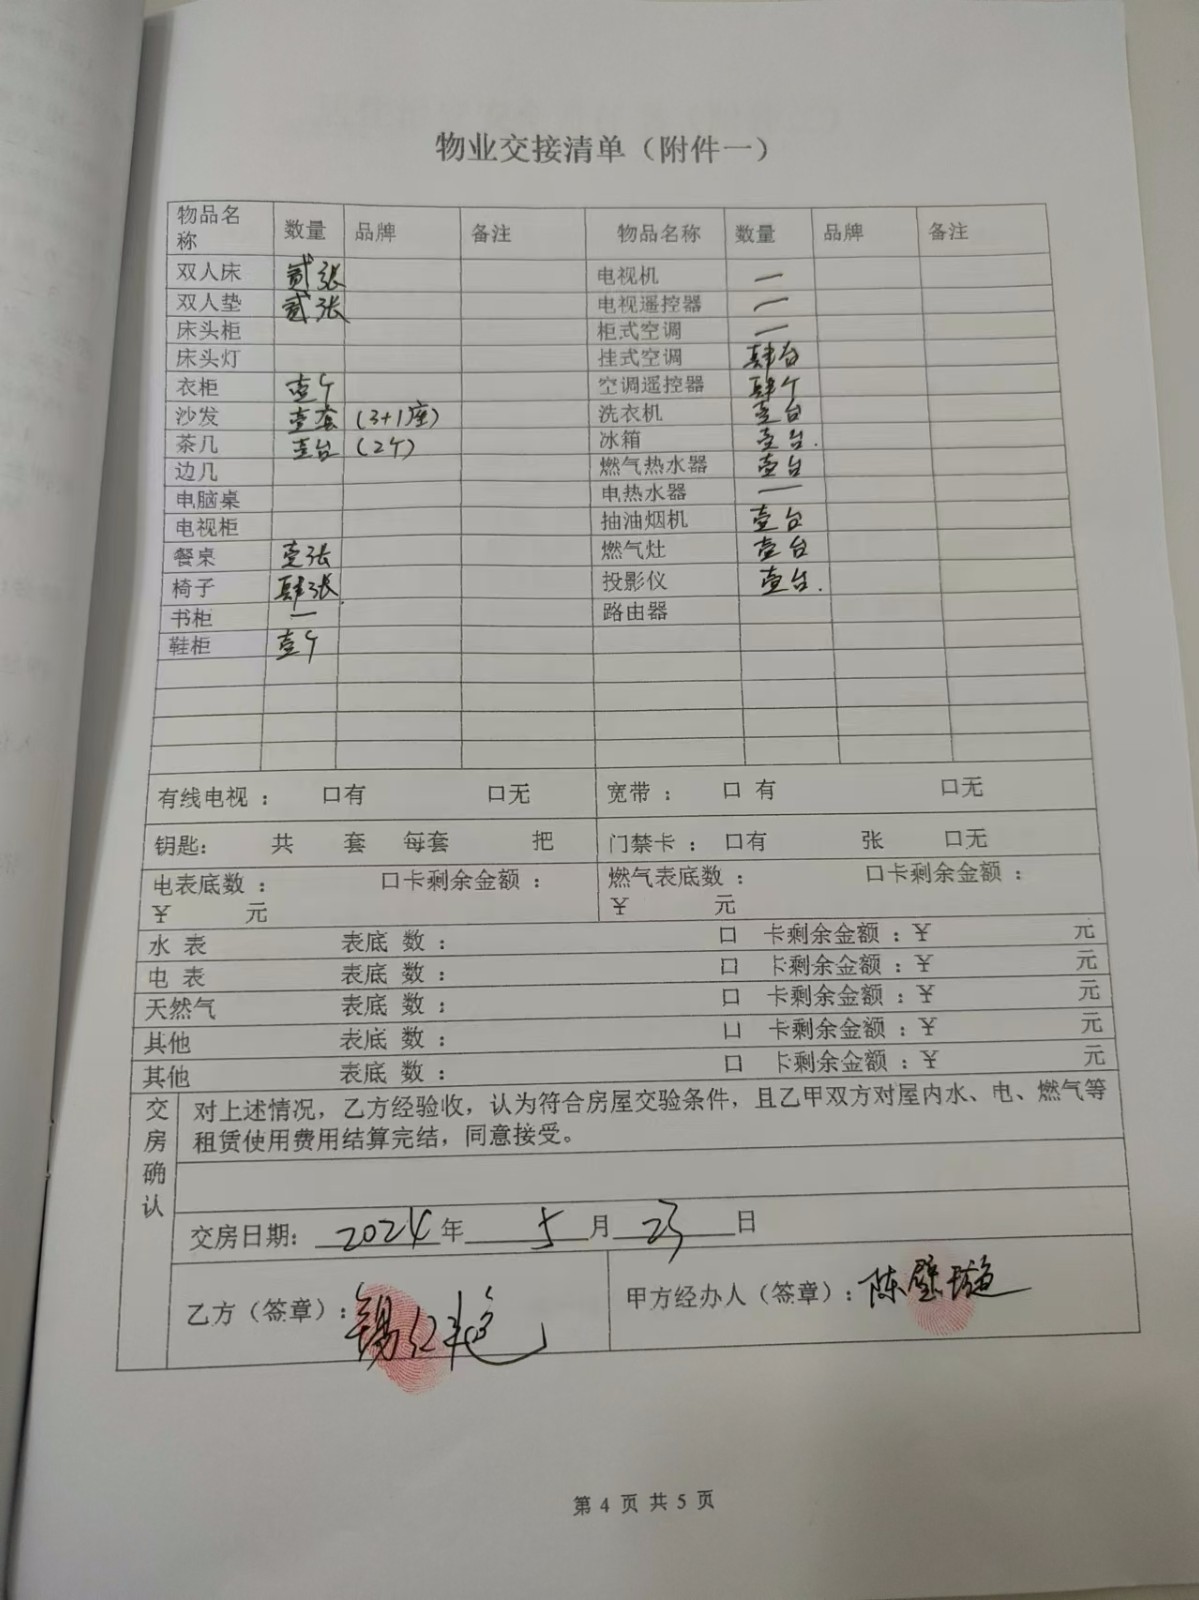 物业交接清单（附件一）
物品名称 数量 品牌 备注 物品名称 数量 品牌 备注
双人床 贰张 电视机 一
双人垫 贰张 电视遥控器 一
床头柜 柜式空调 一
床头灯 挂式空调 肆台
衣柜 壹个 空调遥控器 肆个
沙发 壹套 (3+1座) 洗衣机 壹台
茶几 壹台 (2个) 冰箱 壹台.
边几 燃气热水器 壹台
电脑桌 电热水器 一
电视柜 抽油烟机 壹台
餐桌 壹张 燃气灶 壹台
椅子 肆张. 投影仪 壹台.
书柜 一 路由器
鞋柜 壹个
有线电视： 口有 口无 宽带： 口有 口无
钥匙： 共 套 每套 把 门禁卡： 口有 张 口无
电表底数： 口卡剩余金额： 燃气表底数： 口卡剩余金额：
¥ 元 ¥ 元
水 表 表底 数： 口 卡剩余金额：¥ 元
电 表 表底 数： 口 卡剩余金额：¥ 元
天然气 表底 数： 口 卡剩余金额：¥ 元
其他 表底 数： 口 卡剩余金额：¥ 元
其他 表底 数： 口 卡剩余金额：¥ 元
交房确认
对上述情况，乙方经验收，认为符合房屋交验条件，且乙甲双方对屋内水、电、燃气等
租赁使用费用结算完结，同意接受。
交房日期： 2024年 5月 23日
乙方（签章）： 甲方经办人（签章）：陈
第 4 页 共 5 页